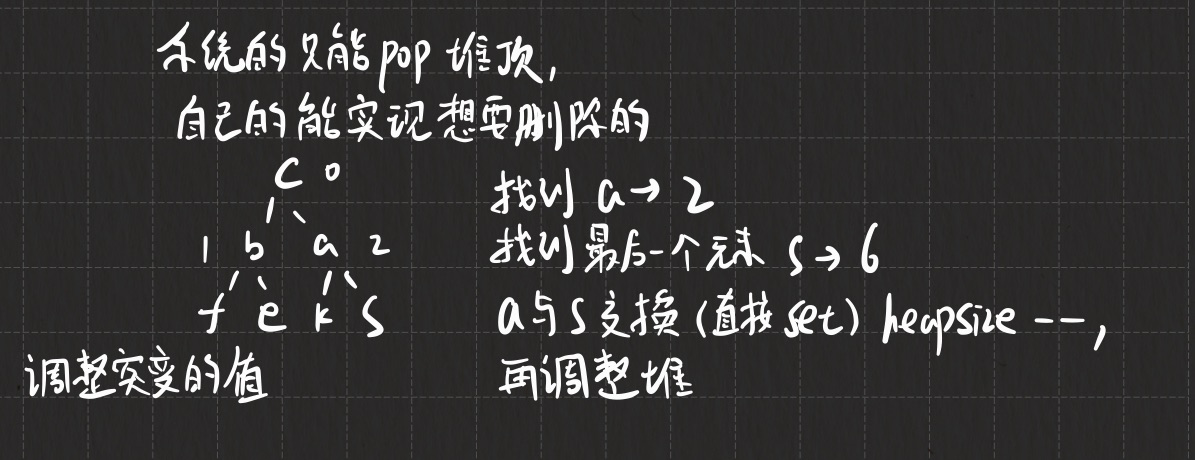 系统的只能pop 堆顶,
自己的能实现想要删除的
C 0
1 b a 2
f e k s
找到 a→2
找到最后一个元素 s→6
a与s交换(直接set) heapsize --,
再调整堆
调整突变的值